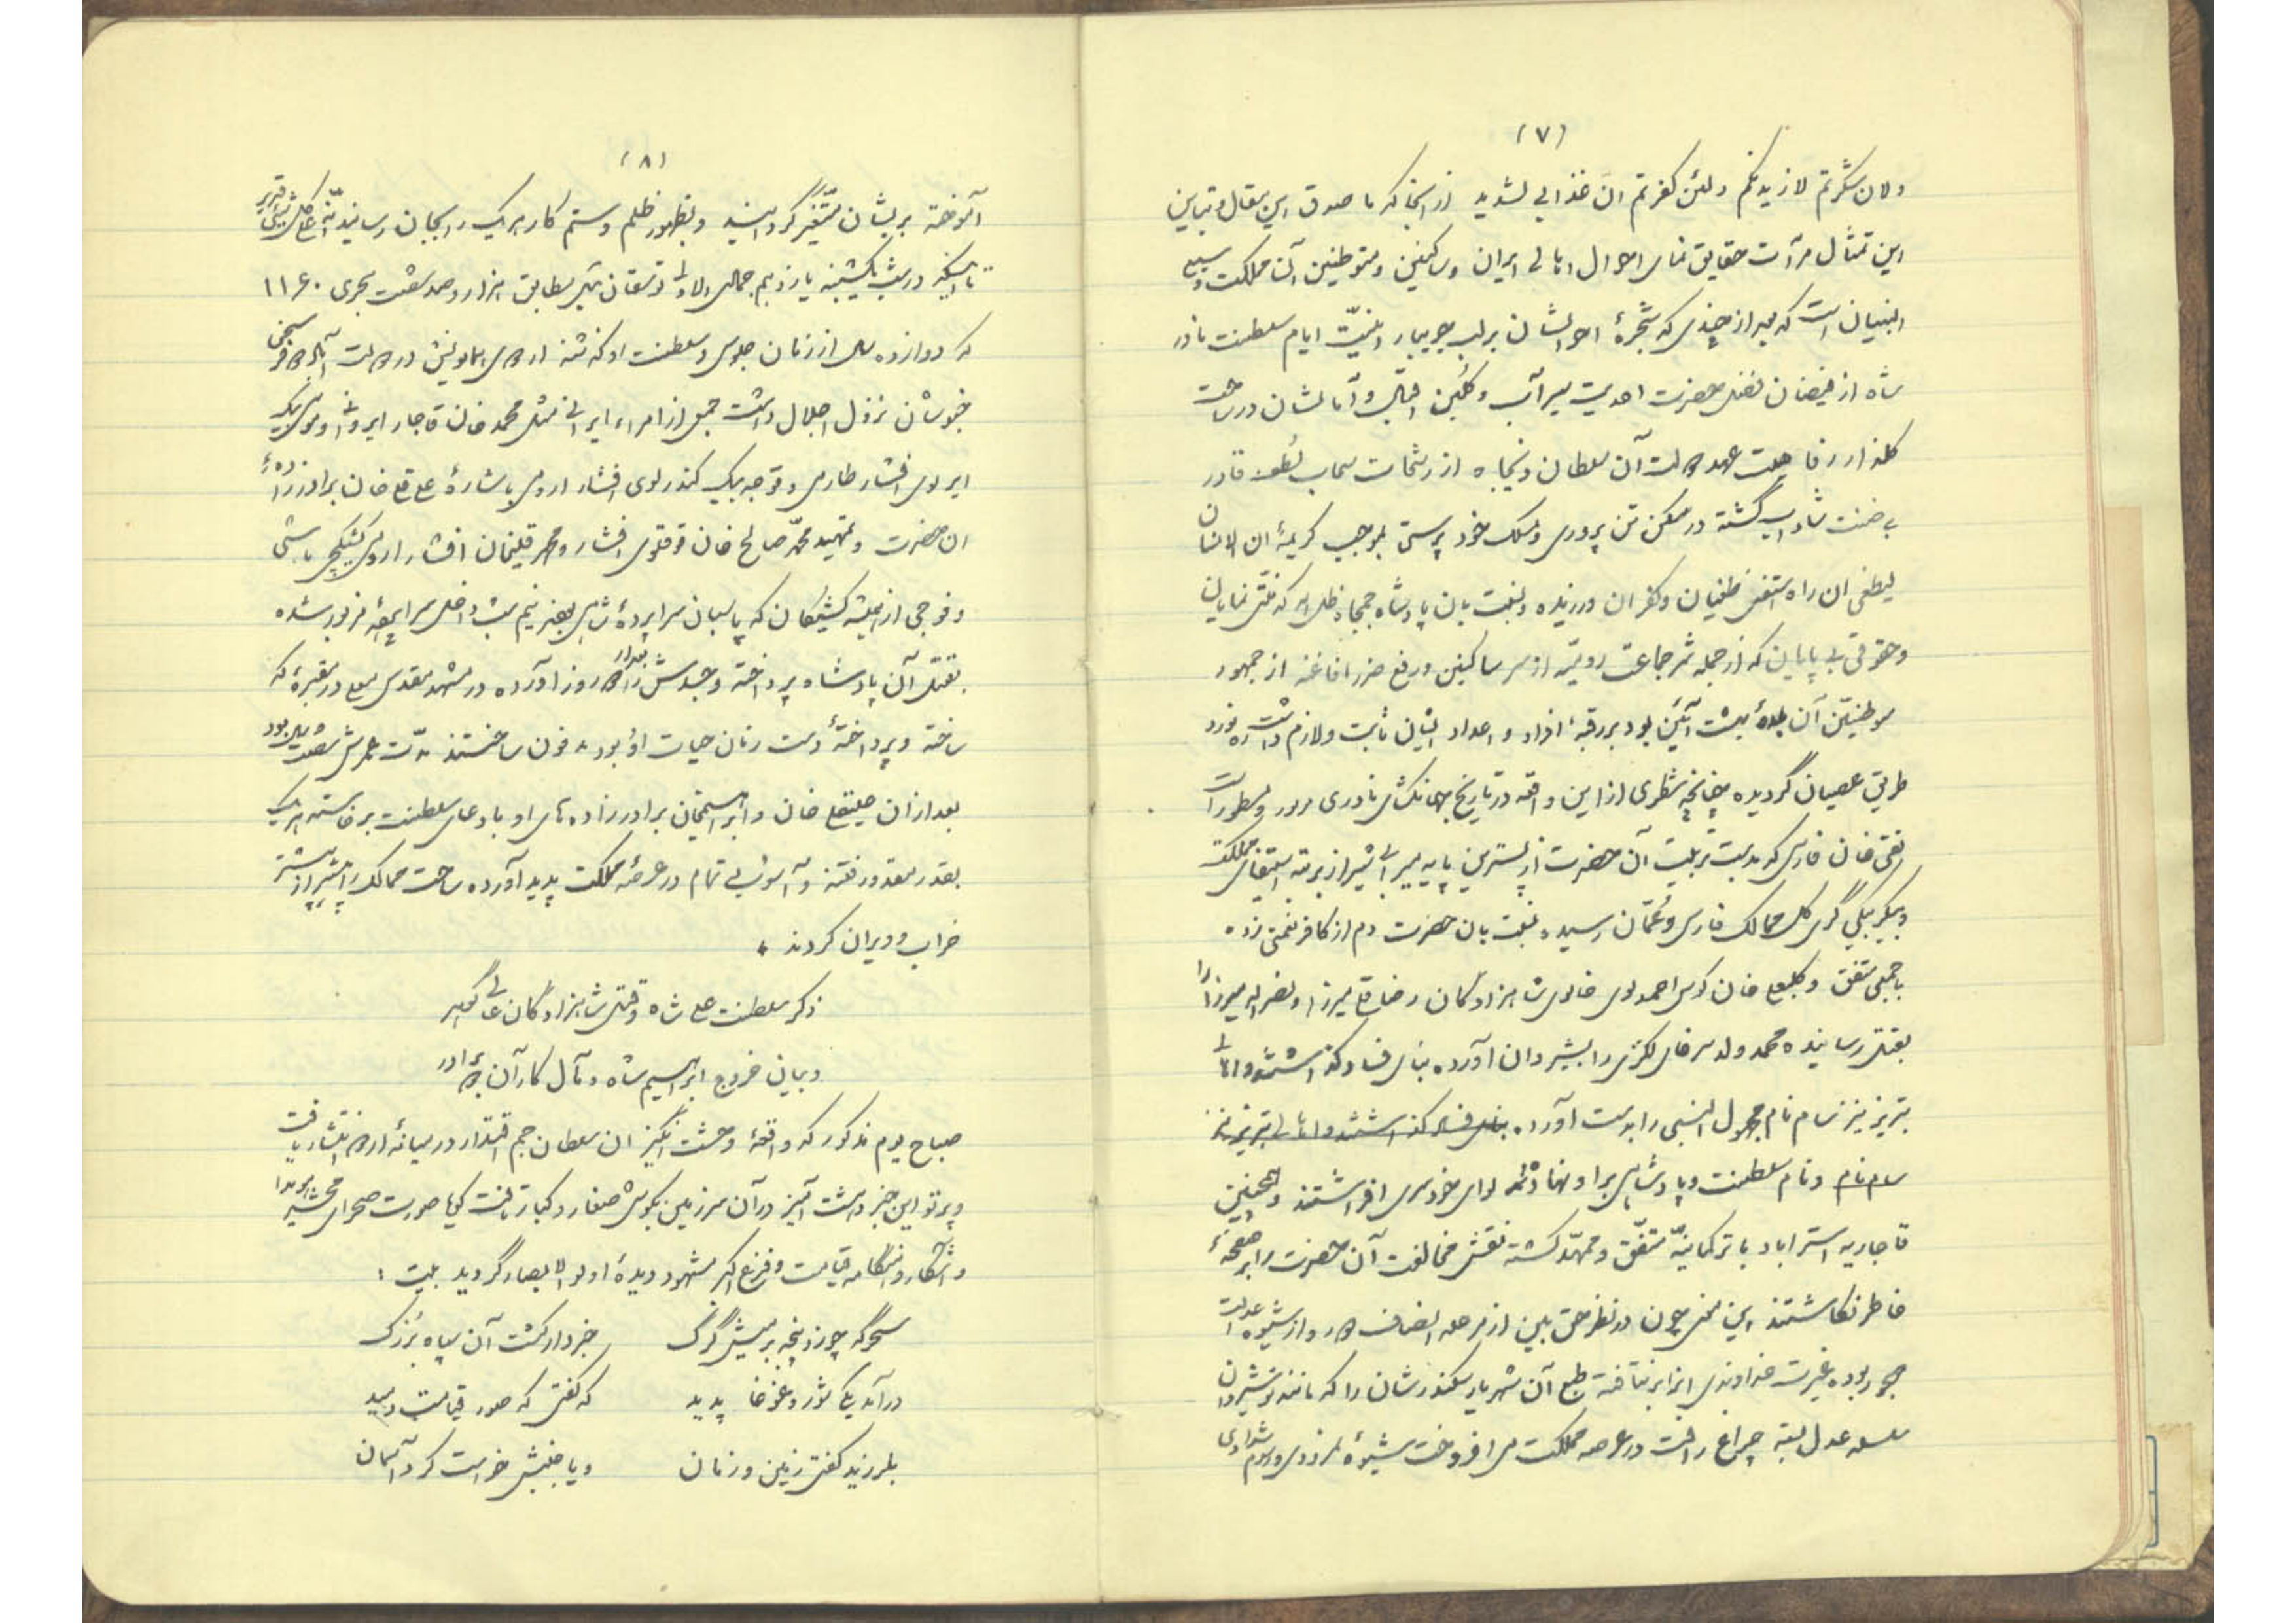 (۷)
ولان شکرتم لازیدنکم ولئن کفرتم ان عذابی لشدید از آنجا که ما صدق این مقال و تباین
این تمثال مرآت حقایق نمای احوال اهالی ایران و ساکنین و متوطنین آن مملکت وسیع
البنیان است که بعد از چندی که شجرهٔ احوالشان بر لب جویبار امنیّت ایام سلطنت نادر
شاه از فیضان فضل حضرت احدیت سیرآب و گلبن اقبال و آمالشان در ساحت
گلزار رفاهیت عهد دولت آن سلطان ونیجاه از رشحات سحاب لطف قادر
بی ضنت شاداب گشته در مسکن تن پروری و مسلک خود پرستی بموجب کریمهٔ ان الانسان
لیطغی ان راه استغنی طغیان و کفران ورزیده و نسبت بان پادشاه جمجاه ظل اله که نعمتی نمایان
وحقوقی بی پایان که از جمله شر جماعت رومیّه از سر ساکنین و رفع ضرر افاغنه از جمهور
موطنین آن بلدهٔ بهشت آئین بود بر رقبهٔ افراد و اعداد ایشان ثابت و لازم داشت ره نورد
طریق عصیان گردیده چنانچه شطری از این واقعه در تاریخ جهانگشای نادری مرور و مسطور است
تقی خان فارسی که بدست تربیت آن حضرت از پسترین پایه میرابی شیراز برتبه استیفای مملکت
و بیگربیگی گری کل ممالک فارس و عُمّان رسیده نسبت بان حضرت دم از کافر نعمتی زده
با جمعی متفق و کلبعلی خان کوسه احمدلوی خالوی شاهزادگان رضا قلی میرزا و نصراله میرزا را
بقتل رسانیده محمد ولد سرخای لکزی را بشیروان آورده بنای فساد گذاشتند و اهالی
تبریز نیز سام نام مجهول النسبی را بدست آورده بنای فساد گذاشتند و اهالی تبریز نیز
سام نام و نام سلطنت و پادشاهی بر او نهاده لوای خودسری افراشتند و همچنین
قاجاریه استراباد با ترکمانیّه متفّق و ممهّد گشته نقش مخالفت آن حضرت را بر صفحهٔ
خاطر نگاشتند این معنی چون در نظر حق بین از مرحله انصاف دور و از شیوه عدالت
مهجور بوده غیرت خداوندی اینرا برنتافته طبع آن شهریار سکندرشان را که مانند نوشیروان
سلسه عدل بسته چراغ رافت در عرصه مملکت می افروخت شیوهٔ نمرودی و رسوم شدادی
(۸)
آموخته بریشان متغیّر گردانید و بظهور ظلم و ستم کار هر یک را بجان رسانید انّه علی کل شیئی قدیر
تا اینکه در شب یکشنبه یازدهم جمادی الاولی توشقان ئیل مطابق هزار و صد و شصت هجری ۱۱۶۰
که دوازده سال از زمان جلوس و سلطنت او گذشته اردوی همایونش در دولت آباد دو فرسخی
خبوشان نزول اجلال داشت جمعی از امراء ایرانی مثل محمد خان قاجار ایروانی و موسی بیک
ایرلوی افشار طارمی و قوجه بیک کندرلوی افشار ارومی باشارهٔ علی قلی خان برادرزادهٔ
ان حضرت و تمهید محمّد صالح خان قرقلوی افشار و محمد قلیخان افشار ارومی کشیکچی باشی
و فوجی از همیشه کشیکان که پاسبان سراپردهٔ شاهی بودند نیم شب داخل سراپردهٔ مزبور شده
بقتل آن پادشاه پرداخته و جسدش را بعد از دو روز آورده در مشهد مقدس معلی در مقبرهٔ که
ساخته و پرداختهٔ دست زمان حیات او بود مدفون ساختند مدّت عمرش شصت سال بود
بعد از ان علیقلی خان و ابراهیمخان برادر زاده های او بادعای سلطنت برخاسته هر یک
بقدر مقدور فتنه و آشوبی تمام در عرصهٔ مملکت پدید آورده ساحت ممالک را بیشتر از پیشتر
خراب و ویران کردند *
ذکر سلطنت علی شاه و قتل شاهزادگان عالی گهر
و بیان خروج ابراهیم شاه و مآل کار آن دو برادر
صباح یوم مذکور که واقعهٔ وحشت انگیز ان سلطان جم اقتدار در میانهٔ اردو انتشار یافت
و پرتو این خبر دهشت آمیز در آن سرزمین بگوش صغار و کبار تافت گویا صورت صحرای محشر هویدا
و آشکار و هنگامه قیامت و فزع اکبر مشهود دیدهٔ اولو الابصار گردید بیت :
سحرگه چو زد پنجه بر میش گرگ خبردار گشت آن سپاه بزرگ
درآمد یکی شور و غوغا پدید که گفتی که صور قیامت دمید
بلرزید گفتی زمین و زمان و یا جنبش خواست کرد آسمان